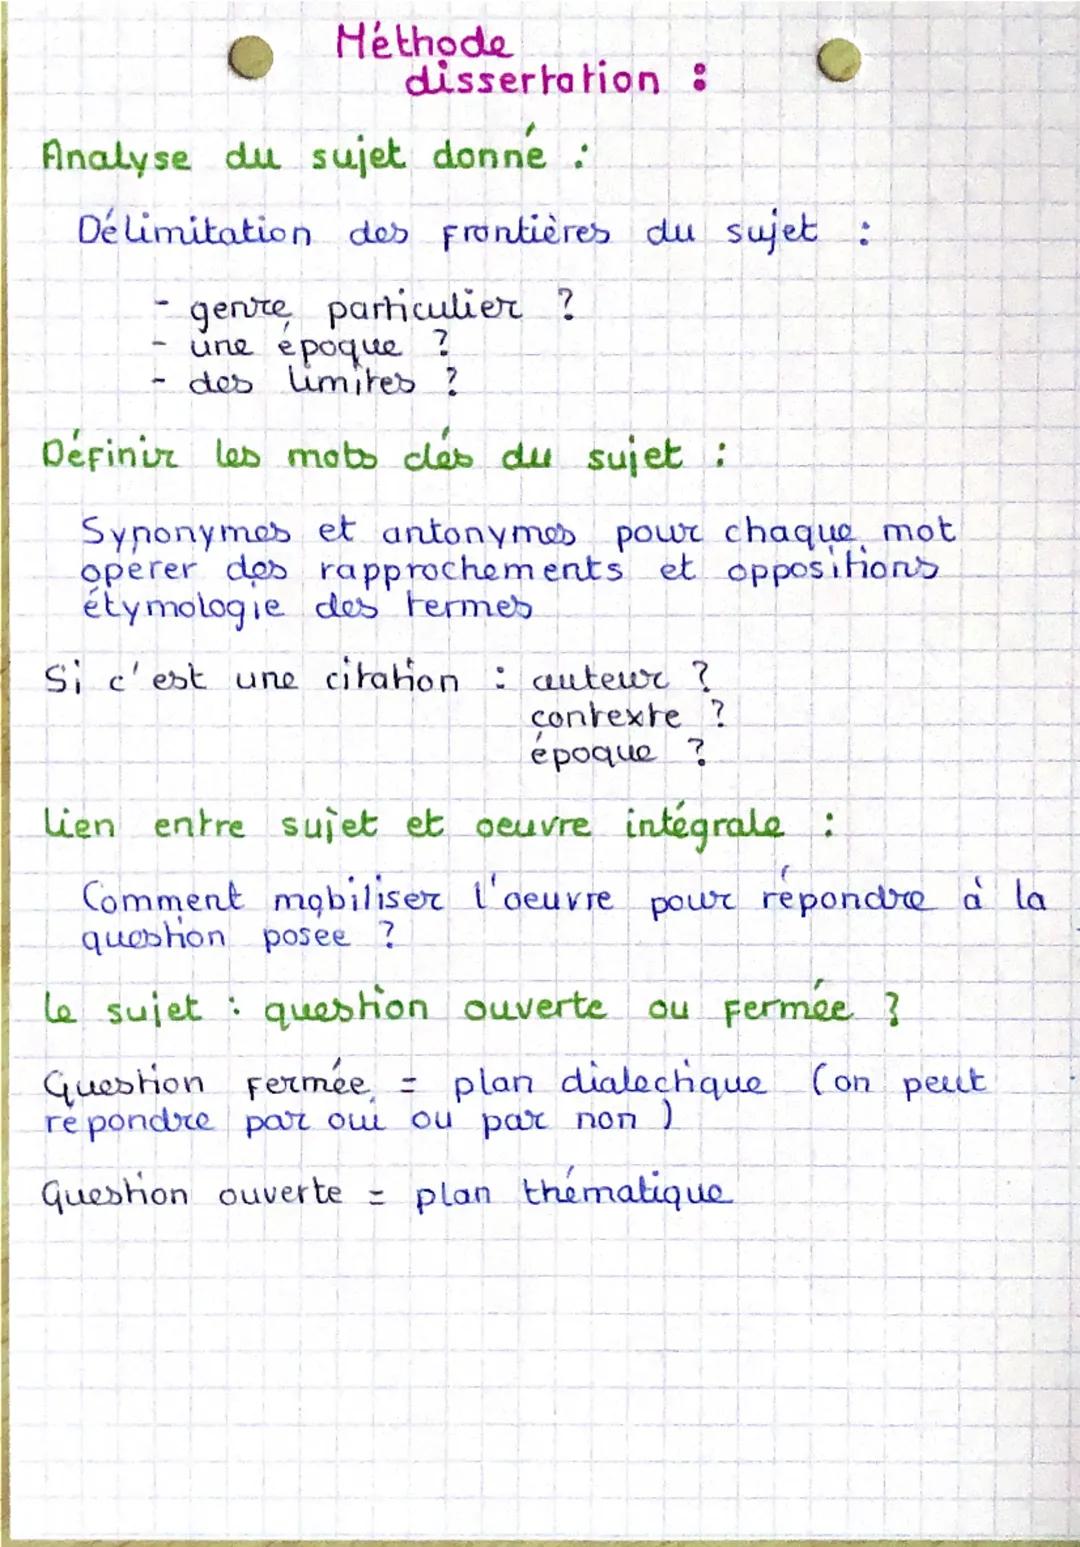 Méthode
dissertation :
Analyse du sujet donné :
Délimitation des frontières du sujet :
- genre particulier ?
- une époque ?
- des limites ?
Définir les mots clés du sujet :
Synonymes et antonymes pour chaque mot
opérer des rapprochements et oppositions
étymologie des termes
Si c'est une citation : auteur ?
contexte ?
époque ?
Lien entre sujet et oeuvre intégrale :
Comment mobiliser l'oeuvre pour répondre à la
question posée ?
Le sujet : question ouverte ou fermée ?
Question fermée = plan dialectique (on peut
répondre par oui ou par non)
Question ouverte = plan thématique